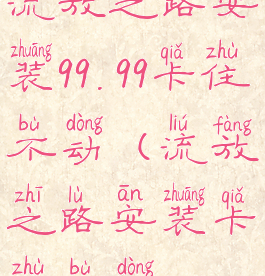 流放之路安
zhuāng qiǎ zhù
装99.99卡住
bù dòng liú fàng
不动(流放
zhī lù ān zhuāng qiǎ
之路安装卡
zhù bù dòng